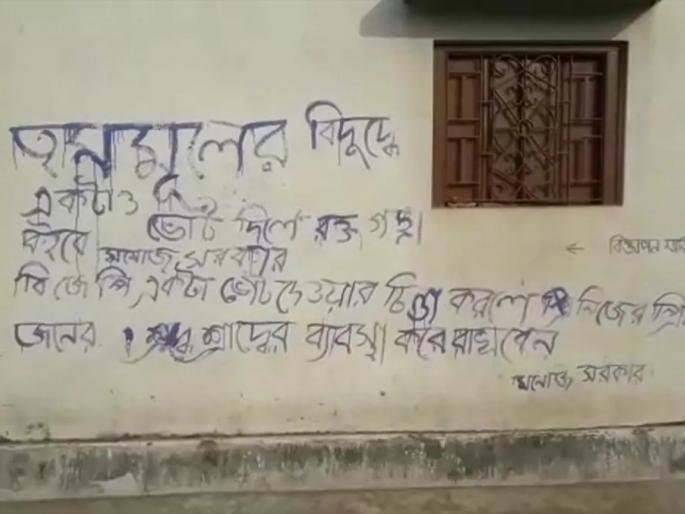 তৃনমূলের বিরুদ্ধে
একটাও ভোট দিলে রক্ত গঙ্গা
বইবে মনোজ সরকার
বিজেপি একটা ভোট দেওয়ার চিন্তা করলে নিজের প্রি
জনের শ্রাদ্ধের ব্যাবস্থা করে রাখবেন
মনোজ সরকার
← বিজ্ঞাপন